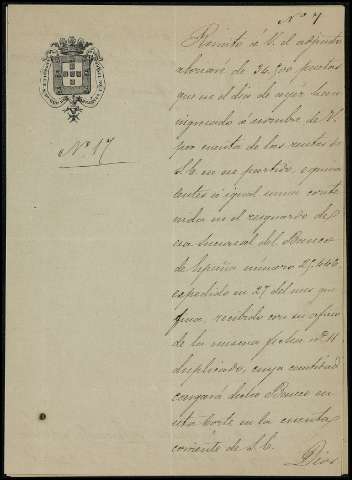 Nº 7
Nº 17
Remito á V. el adjunto
abonaré de 34.500 pesetas
que en el día de ayer han
ingresado á nombre de V.
por cuenta de las rentas de
S.E. en ese partido, equiva
lentes á igual suma conte
nida en el resguardo de
esa Sucursal del Banco
de España número 27.446
expedido en 27 del mes que
fina, recibido con su oficio
de la misma fecha nº 11
duplicado, cuya cantidad
cargará dicho Banco en
esta Corte en la cuenta
corriente de S.E.
Dios